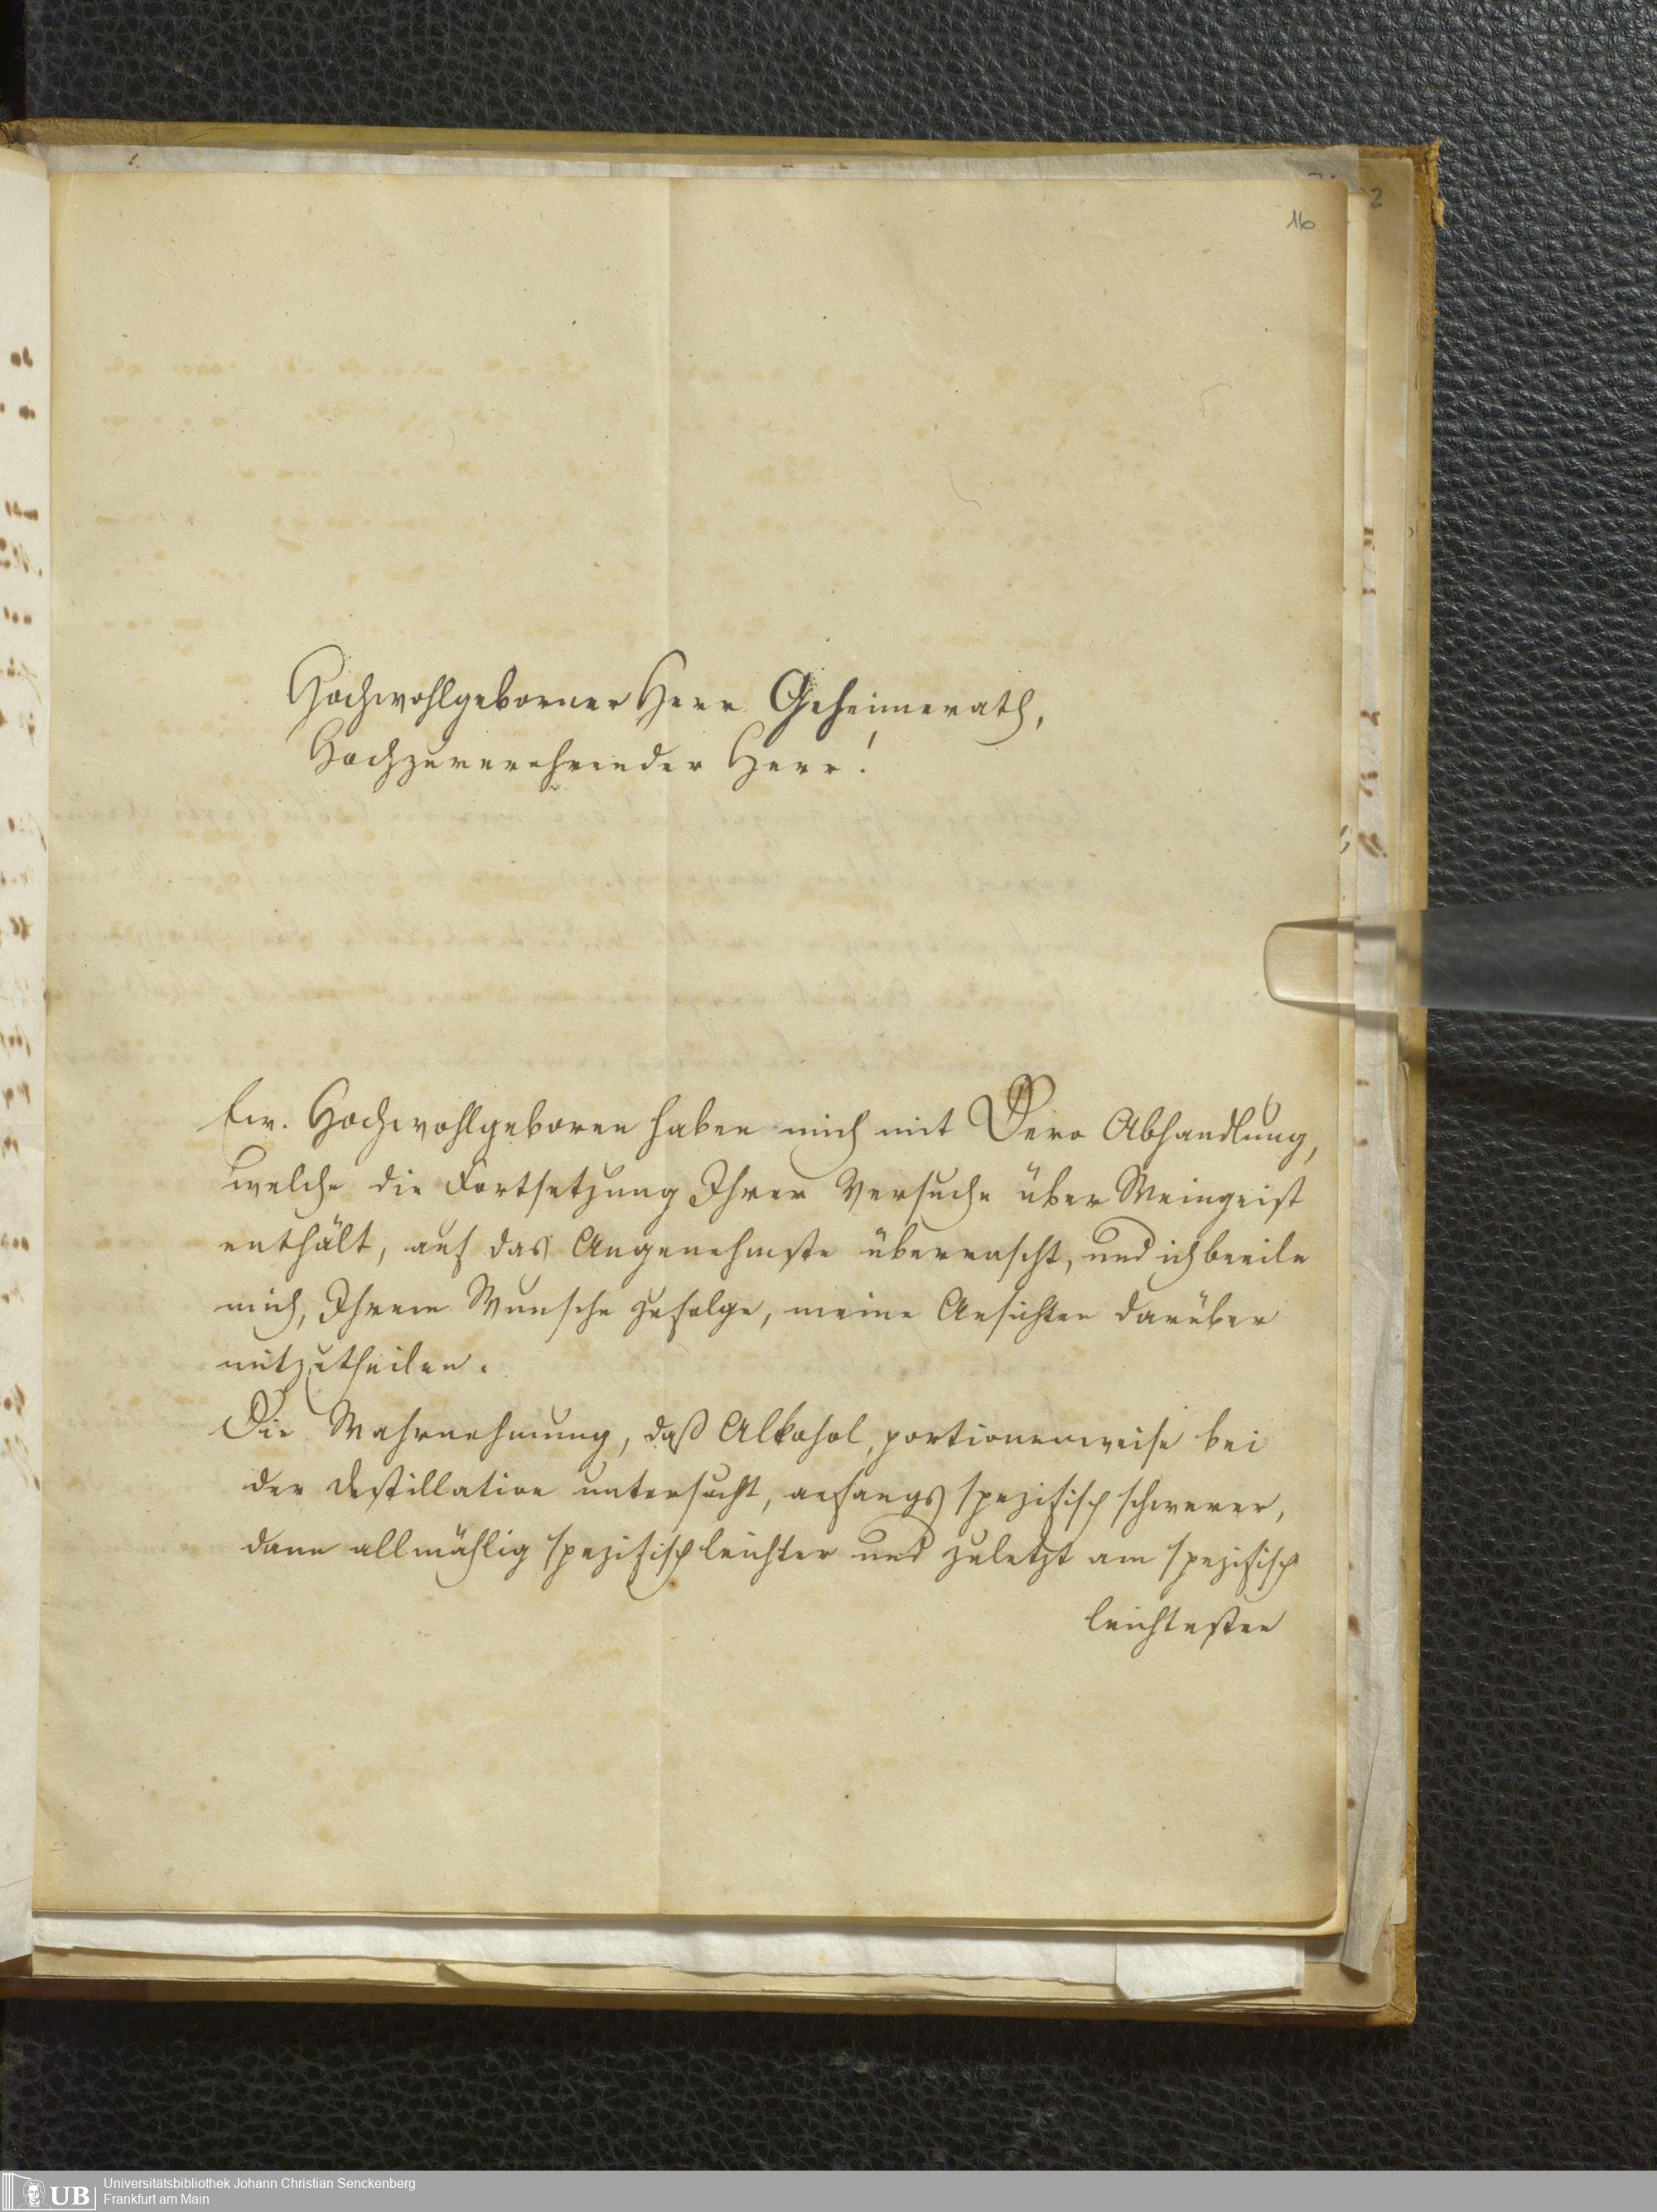 16
Hochwohlgeborner Herr Geheimerath,
Hochzuverehrender Herr!
Ew. Hochwohlgeboren haben mich mit Dero Abhandlung,
welche die Fortsetzung Ihrer Versuche über Weingeist
enthält, auf das Angenehmste überrascht, und ich beeile
mich, Ihrem Wunsche zufolge, meine Ansichten darüber
mitzutheilen.
Die Wahrnehmung, daß Alkohol, portionenweise bei
der Destillation untersucht, anfangs spezifisch schwerer,
dann allmählig spezifisch leichter und zuletzt am spezifisch
leichtesten
UB
Universitätsbibliothek Johann Christian Senckenberg
Frankfurt am Main